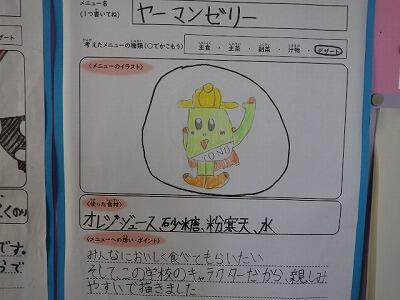 メニュー名
(1つ書いてね)
ヤーマンゼリー
考えたメニューの種類(○でかこもう) 主食・主菜・副菜・汁物・デザート
<メニューのイラスト>
TONO
<使った食材>
オレジジュース、砂糖、粉寒天、水
<メニューへの想い・ポイント>
みんなにおいしく食べてもらいたい
そして、この学校のキャラクターだから、親しみ
やすいで描きました